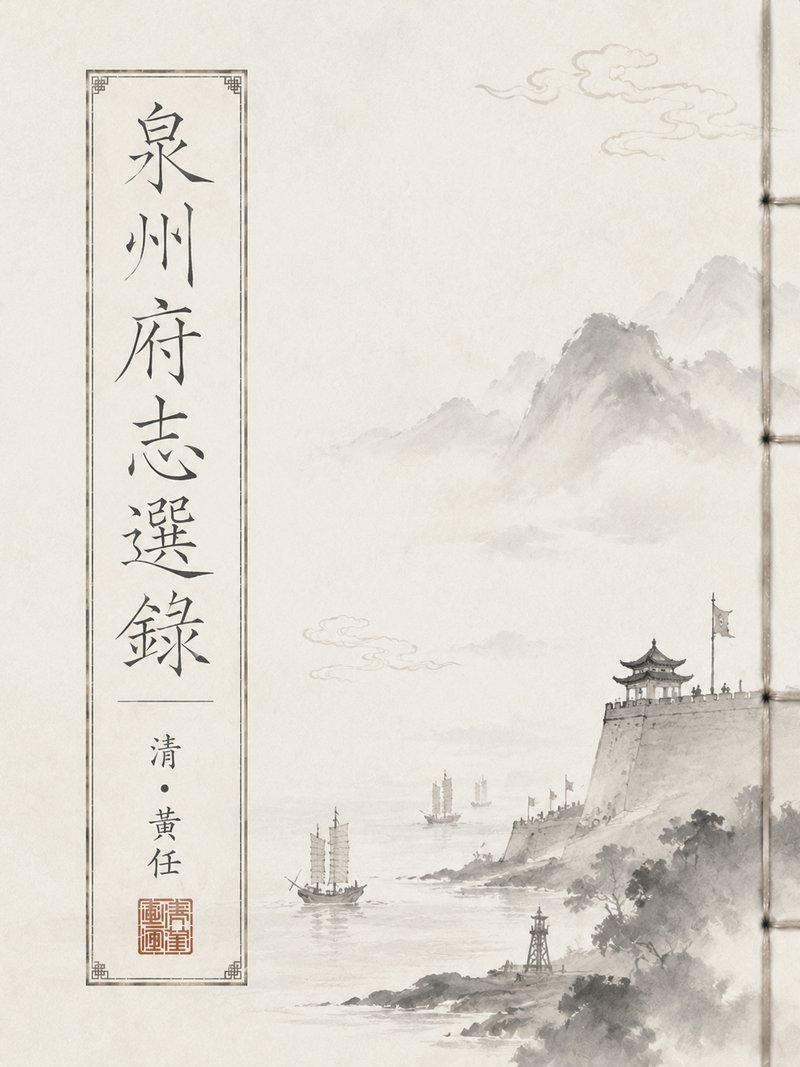 泉州府志選錄
清·黃任